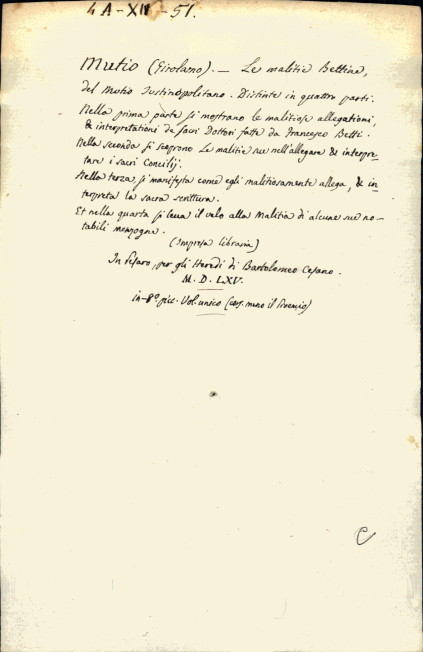 4 A-XII-51.
Mutio (Girolamo). — Le malitie Bettine,
del Mutio Iustinopolitano. Distinte in quattro parti.
Nella prima parte si mostrano le malitiose allegationi,
& interpretationi de sacri Dottori fatte da Francesco Betti.
Nella seconda si scoprono le malitie sue nell'allegare & interpre-
tare i sacri Concilij.
Nella terza, si manifesta come egli malitiosamente allega, & in-
terpreta la sacra scrittura.
Et nella quarta si leva il velo alla malitia di alcune sue no-
tabili menzogne.
(Impresa libraria)
In Pesaro, per gli Heredi di Bartolomeo Cesano.
M. D. LXV.
in-8º. picc. Vol. unico (cors. meno il Proemio)
C